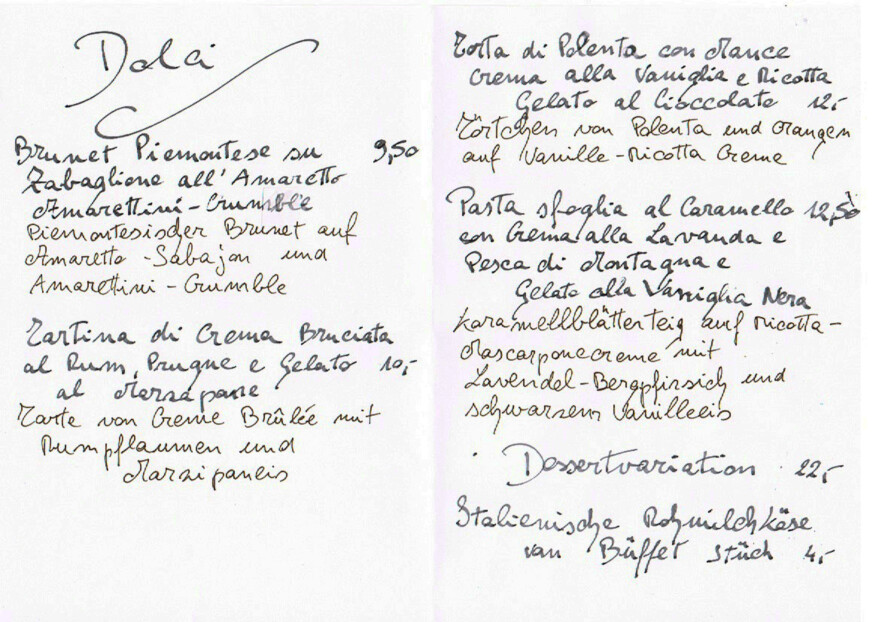 Dolci
Brunet Piemontese su 9,50
Zabaglione all'Amaretto
Amarettini-Crumble
Piemontesischer Brunet auf
Amaretto-Sabajon und
Amarettini-Crumble
Tartina di Crema Bruciata
al Rum, Prugne e Gelato 10,-
al Marzipane
Tarte von Creme Brûlée mit
Rumpflaumen und
Marzipaneis
Torta di Polenta con Arance
Crema alla Vaniglia e Ricotta
Gelato al Cioccolato 12,-
Törtchen von Polenta und Orangen
auf Vanille-Ricotta Creme
Pasta sfoglia al Caramello 12,50
con Crema alla Lavanda e
Pesca di Montagna e
Gelato alla Vaniglia Nera
Karamellblätterteig auf Ricotta-
Mascarponecreme mit
Lavendel-Bergpfirsich und
schwarzem Vanilleeis
Dessertvariation 22,-
Italienische Rohmilchkäse
von Büffet Stück 4,-